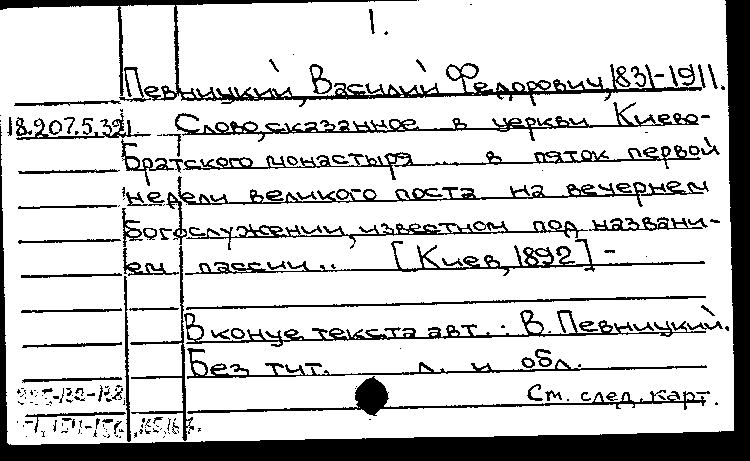 1.
Певницкий, Василий Федорович, 1831-1911.
18.207.5.321. Слово, сказанное в церкви Киево-
Братского монастыря ... в пяток первой
недели великого поста на вечернем
богослужении, известном под названи-
ем пассии.. [Киев, 1892] -
В конце текста авт.: В. Певницкий.
Без тит. л. и обл.
См. след. карт.